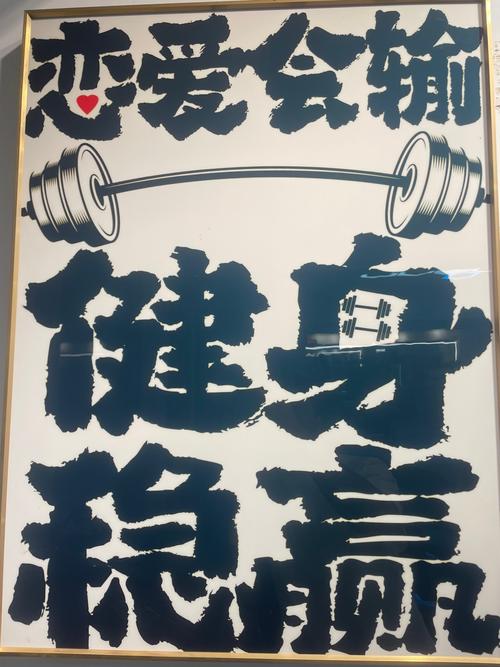 恋爱会输
健身
稳赢